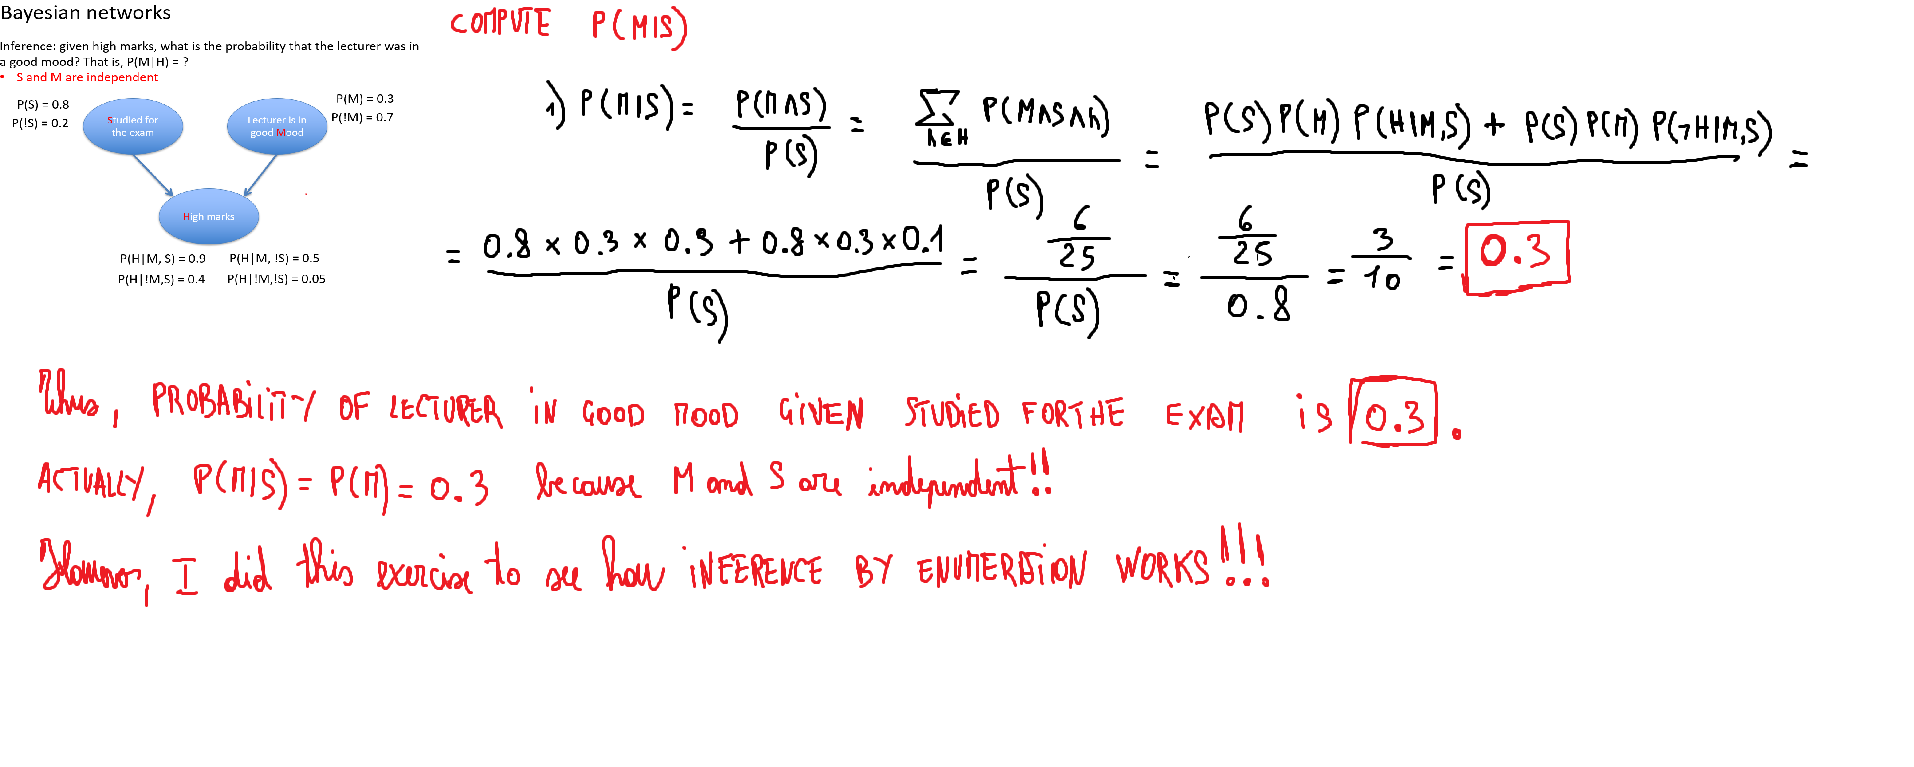 Bayesian networks
Inference: given high marks, what is the probability that the lecturer was in
a good mood? That is, P(M|H) = ?
• S and M are independent
P(S) = 0.8
P(!S) = 0.2
Studied for
the exam
Lecturer is in
good Mood
P(M) = 0.3
P(!M) = 0.7
High marks
P(H|M, S) = 0.9 P(H|M, !S) = 0.5
P(H|!M,S) = 0.4 P(H|!M,!S) = 0.05
COMPUTE P(M|S)
1) P(M|S) = P(M∧S) / P(S) = ∑ h∈H P(M∧S∧h) / P(S) = P(S) P(M) P(H|M,S) + P(S) P(M) P(¬H|M,S) / P(S) =
= 0.8 × 0.3 × 0.3 + 0.8 × 0.3 × 0.1 / P(S) = 6/25 / P(S) = 6/25 / 0.8 = 3/10 = 0.3
Thus, PROBABiLiTY OF LECTURER iN GOOD MOOD GiVEN STUDiED FOR THE EXAM iS 0.3.
ACTUALLY, P(M|S) = P(M) = 0.3 because M and S are independent!!
However, I did this exercise to see how iNFERENCE BY ENUMERATiON WORKS!!!